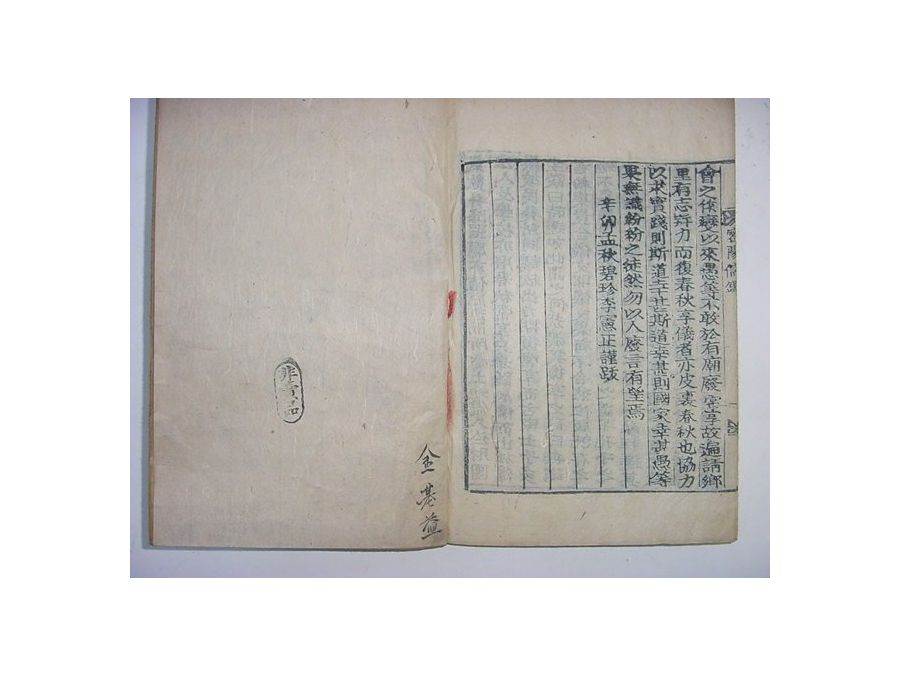 會之後變以來愚等不敢於有廟廢享故遍請鄉
里有志齊力而復春秋享儀者亦皮裏春秋也協力
以求實踐則斯道幸甚斯道幸甚則國家幸甚愚等
果無識紛紛之徒然勿以人廢言有望焉
辛卯孟秋碧珍李憲正謹跋
密陽儒
非賣品
金基益